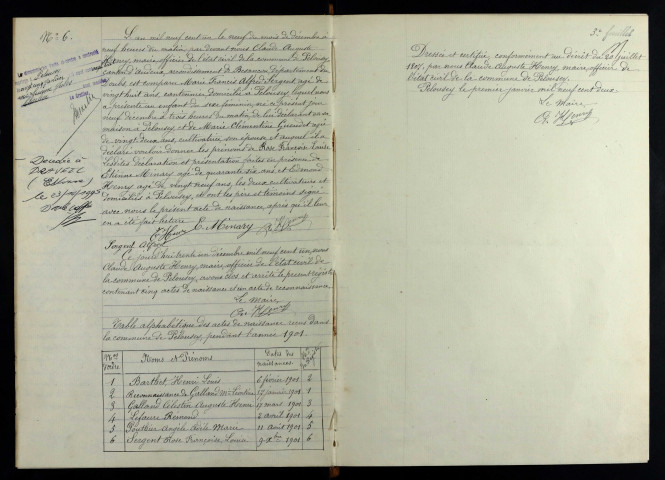 N° 6.
L'an mil neuf cent un le neuf du mois de décembre à
neuf heures du matin par devant nous Claude Auguste
Henry, maire, officier de l'état civil de la commune de Pelousey,
canton d'Audeux, arrondissement de Besançon, département du
Doubs est comparu Marie François Alfred Sergent agé de
vingt huit ans, cantonnier domicilié à Pelousey, lequel nous
a présenté un enfant du sexe féminin, né ce présent jour
neuf décembre à trois heures du matin de lui déclarant en sa
maison à Pelousey et de Marie Clémentine agée
de vingt deux ans, cultivatrice son épouse et auquel il a
déclaré vouloir donner les prénoms de Rose Françoise Louise
Lesdites déclaration et présentation faites en présence de
Etienne Minary agé de quarante six ans et Edmond
Henry agé de vingt neuf ans, les deux cultivateurs et
domiciliés à Pelousey, et ont les père et témoins signé
avec nous le présent acte de naissance après qu'il leur
en a été fait lecture.
E. Henry E. Minary
Sergent Alfred
Décédée à
DRAVEIL
(Essonne)
Ce jourd'hui trente un décembre mil neuf cent un, nous
Claude Auguste Henry, maire, officier de l'état civil de
la commune de Pelousey, avons clos et arrêté le présent registre
contenant cinq actes de naissance et un acte de reconnaissance.
Le Maire
Table alphabétique des actes de naissance reçus dans
la commune de Pelousey, pendant l'année 1901.
Nos d'ordre Noms et Prénoms Dates des naissances
1 Barthet Henri Louis 6 février 1901 2
2 Reconnaissance de Galland Mie Léontine 17 janvier 1901 1
3 Galland Célestin Auguste Henri 17 mars 1901 3
4 Lefaivre 2 avril 1901 4
5 Pouthier Angèle Adèle Marie 11 août 1901 5
6 Sergent Rose Françoise Louise 9 Xbre 1901 6
3e feuillet
Dressée et certifiée, conformément au décret du 20 juillet
1807, par nous Claude Auguste Henry, maire officier de
l'état civil de la commune de Pelousey.
Pelousey le premier janvier mil neuf cent deux.
Le Maire